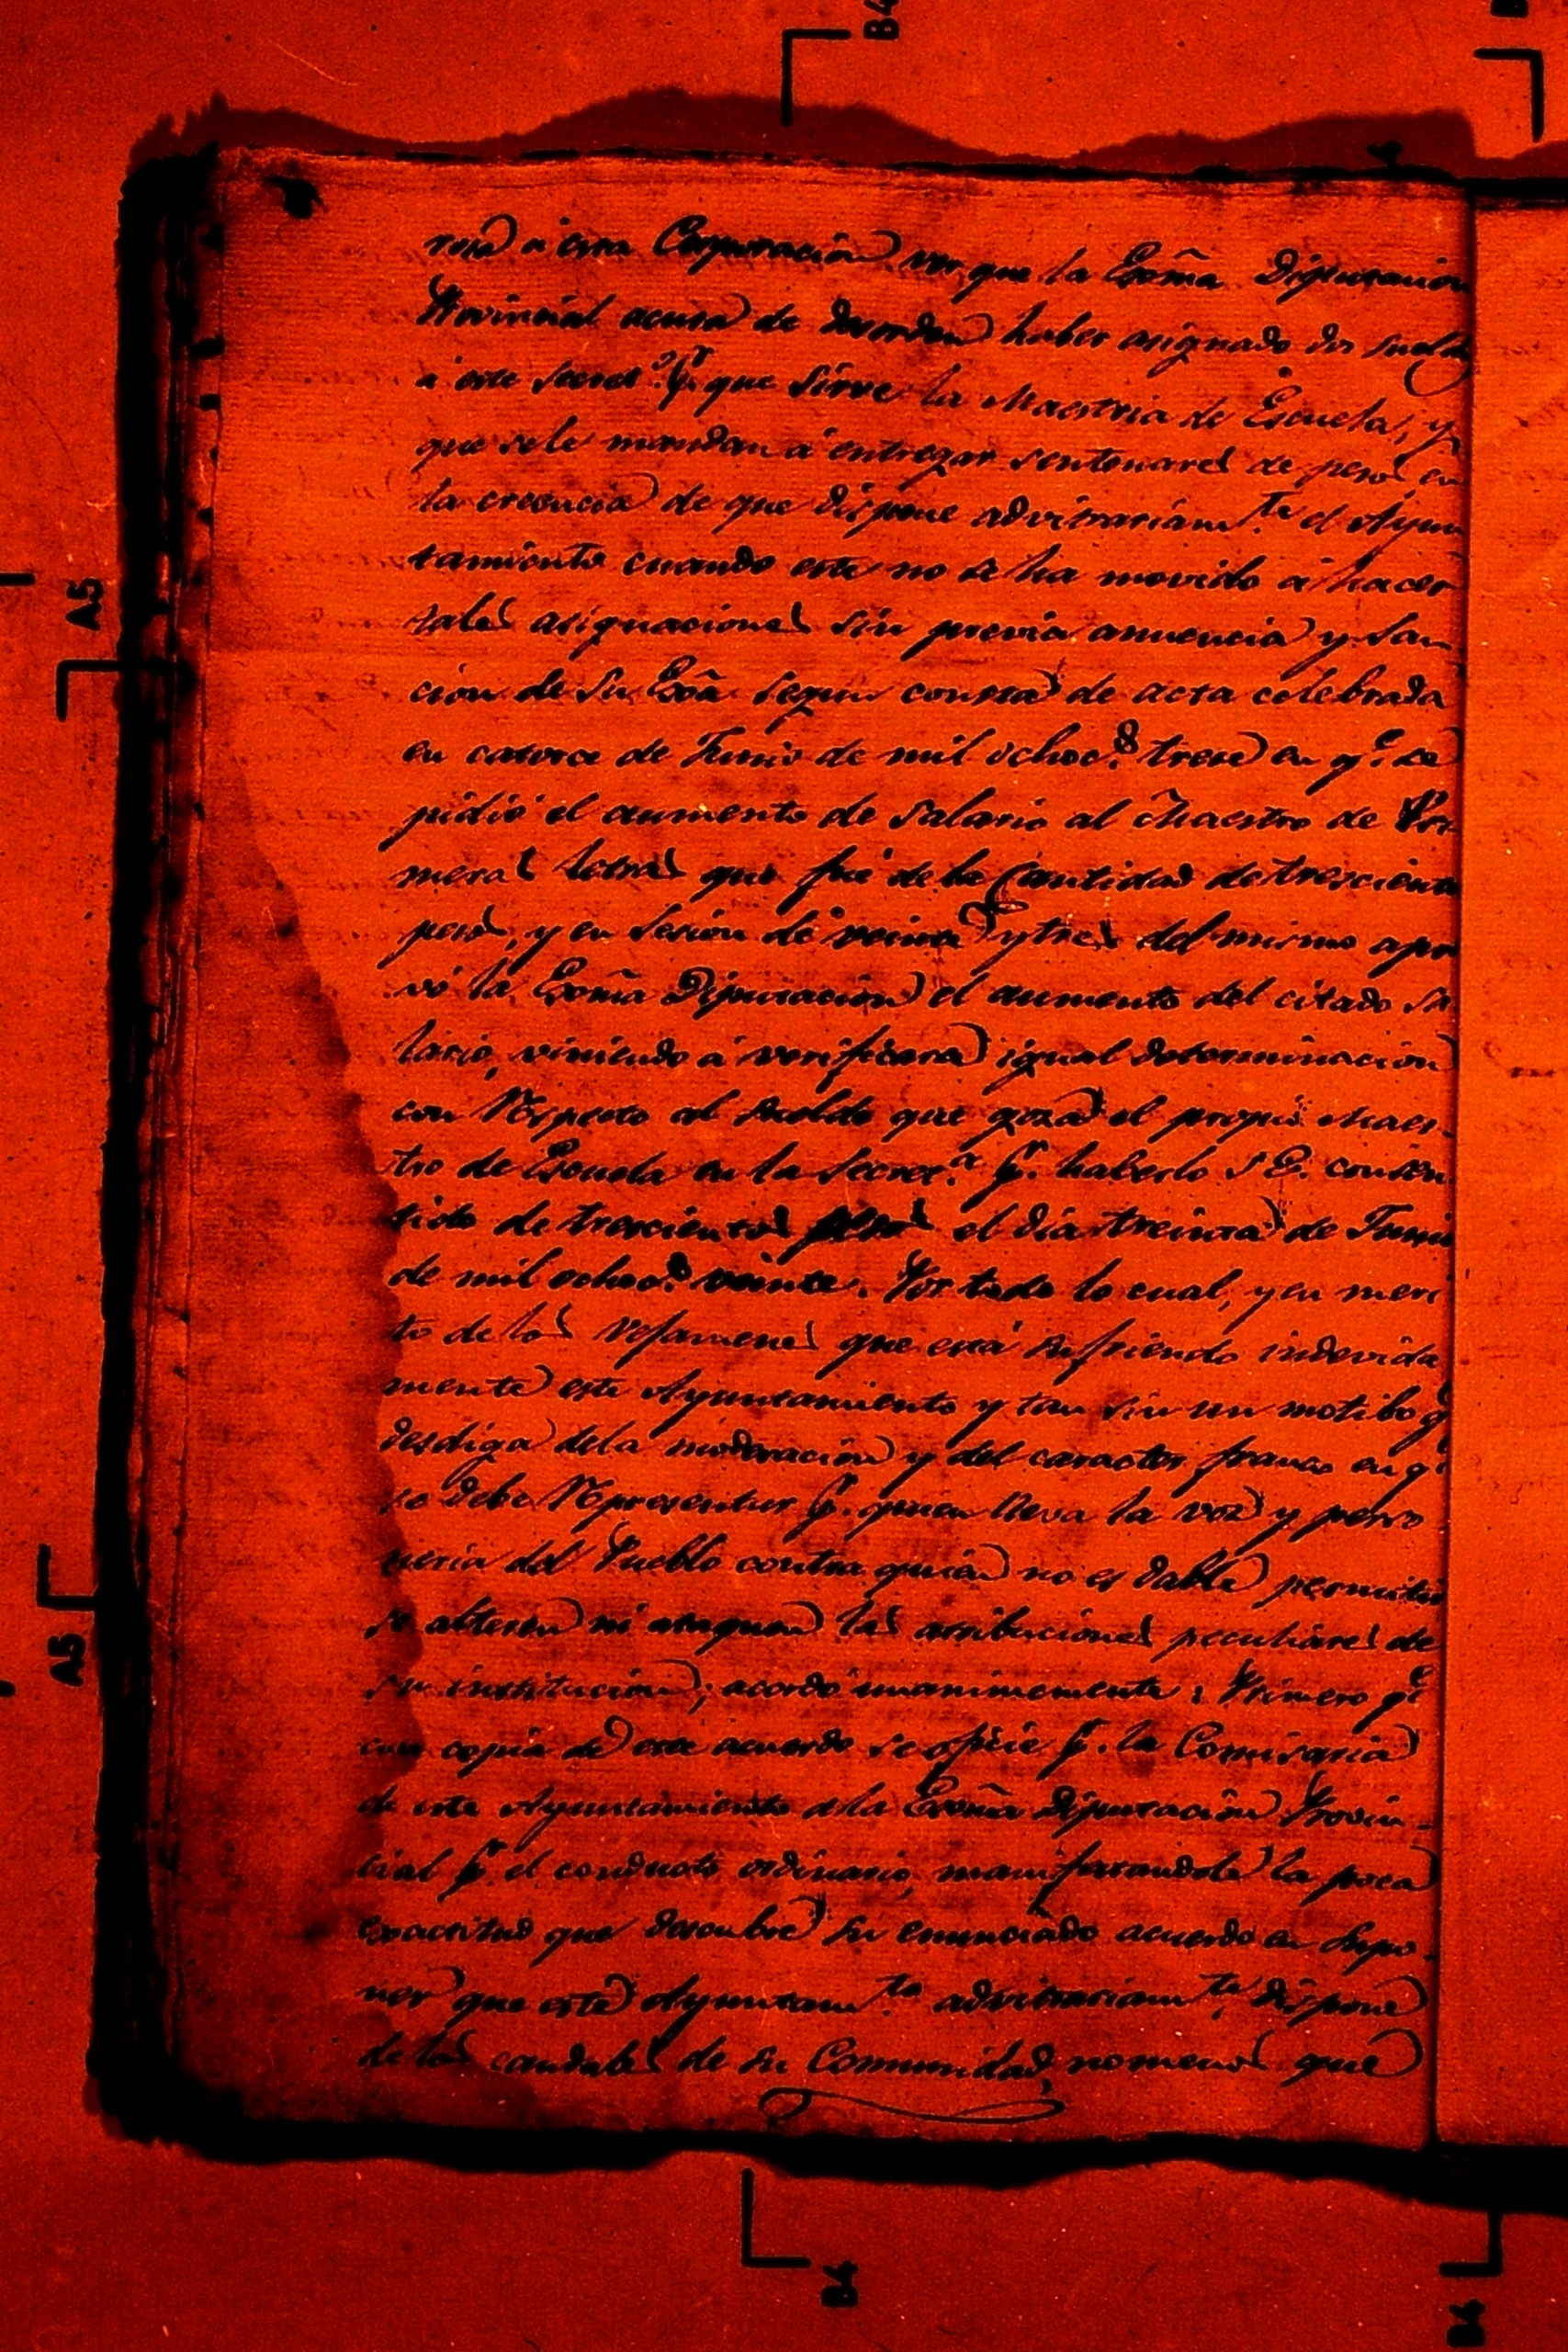 B4
A5
A5
B4
B4
a esta Corporación ver que la Exma Diputacion
Provincial acusa de desorden haber asignado dos sueldos
á este Secret.º pr. que sirve la Maestria de Escuela, y
que se le mandan á entregar sentenares de pesos en
la creencia de que dispone advitrariam.te el Ayun
tamiento cuando este no se ha movido á hacer
tales asignaciones sin previa anuencia y san
cion de Su Exâ segun consta de acta celebrada
en catorce de Junio de mil ochoc.s trese en q.e se
pidió el aumento de Salario al Maestro de Pri
meras letras que fué de la Cantidad de trescientos
pesos, y en Sesion de veinte y tres del mismo apro
vó la Exma Diputacion el aumento del citado Sa
lario, viniendo á verificarse igual determinacion
con Respecto al Sueldo que goza el propio Maes-
tro de Escuela en la Secret.a pr. haberlo S.E. consen
tido de trescientos pesos el dia treinta de Junio
de mil ochoc.s veinte. Por todo lo cual, y en meri
to de los Vejamenes que está sufriendo indevida
mente este Ayuntamiento y tan sin un motibo q.e
desdiga dela moderación y del caracter franco en q.e
se debe Representar pr. quien lleva la voz y perso
neria del Pueblo contra quien no es dable permitir
se alteren ni ataquen las atribuciones peculiares de
su institucion; acordó unanimemente: Primero q.e
con copia de este acuerdo se oficie pr. la Comisaria
de este Ayuntamiento á la Exma Diputación Provin-
cial pr. el conducto ordinario, manifestandole la poca
exactitud que descubre su enunciado acuerdo en Supo-
ner que este Ayuntam.to advitrariam.te dispone
de los caudales de su Comunidad, no menos que